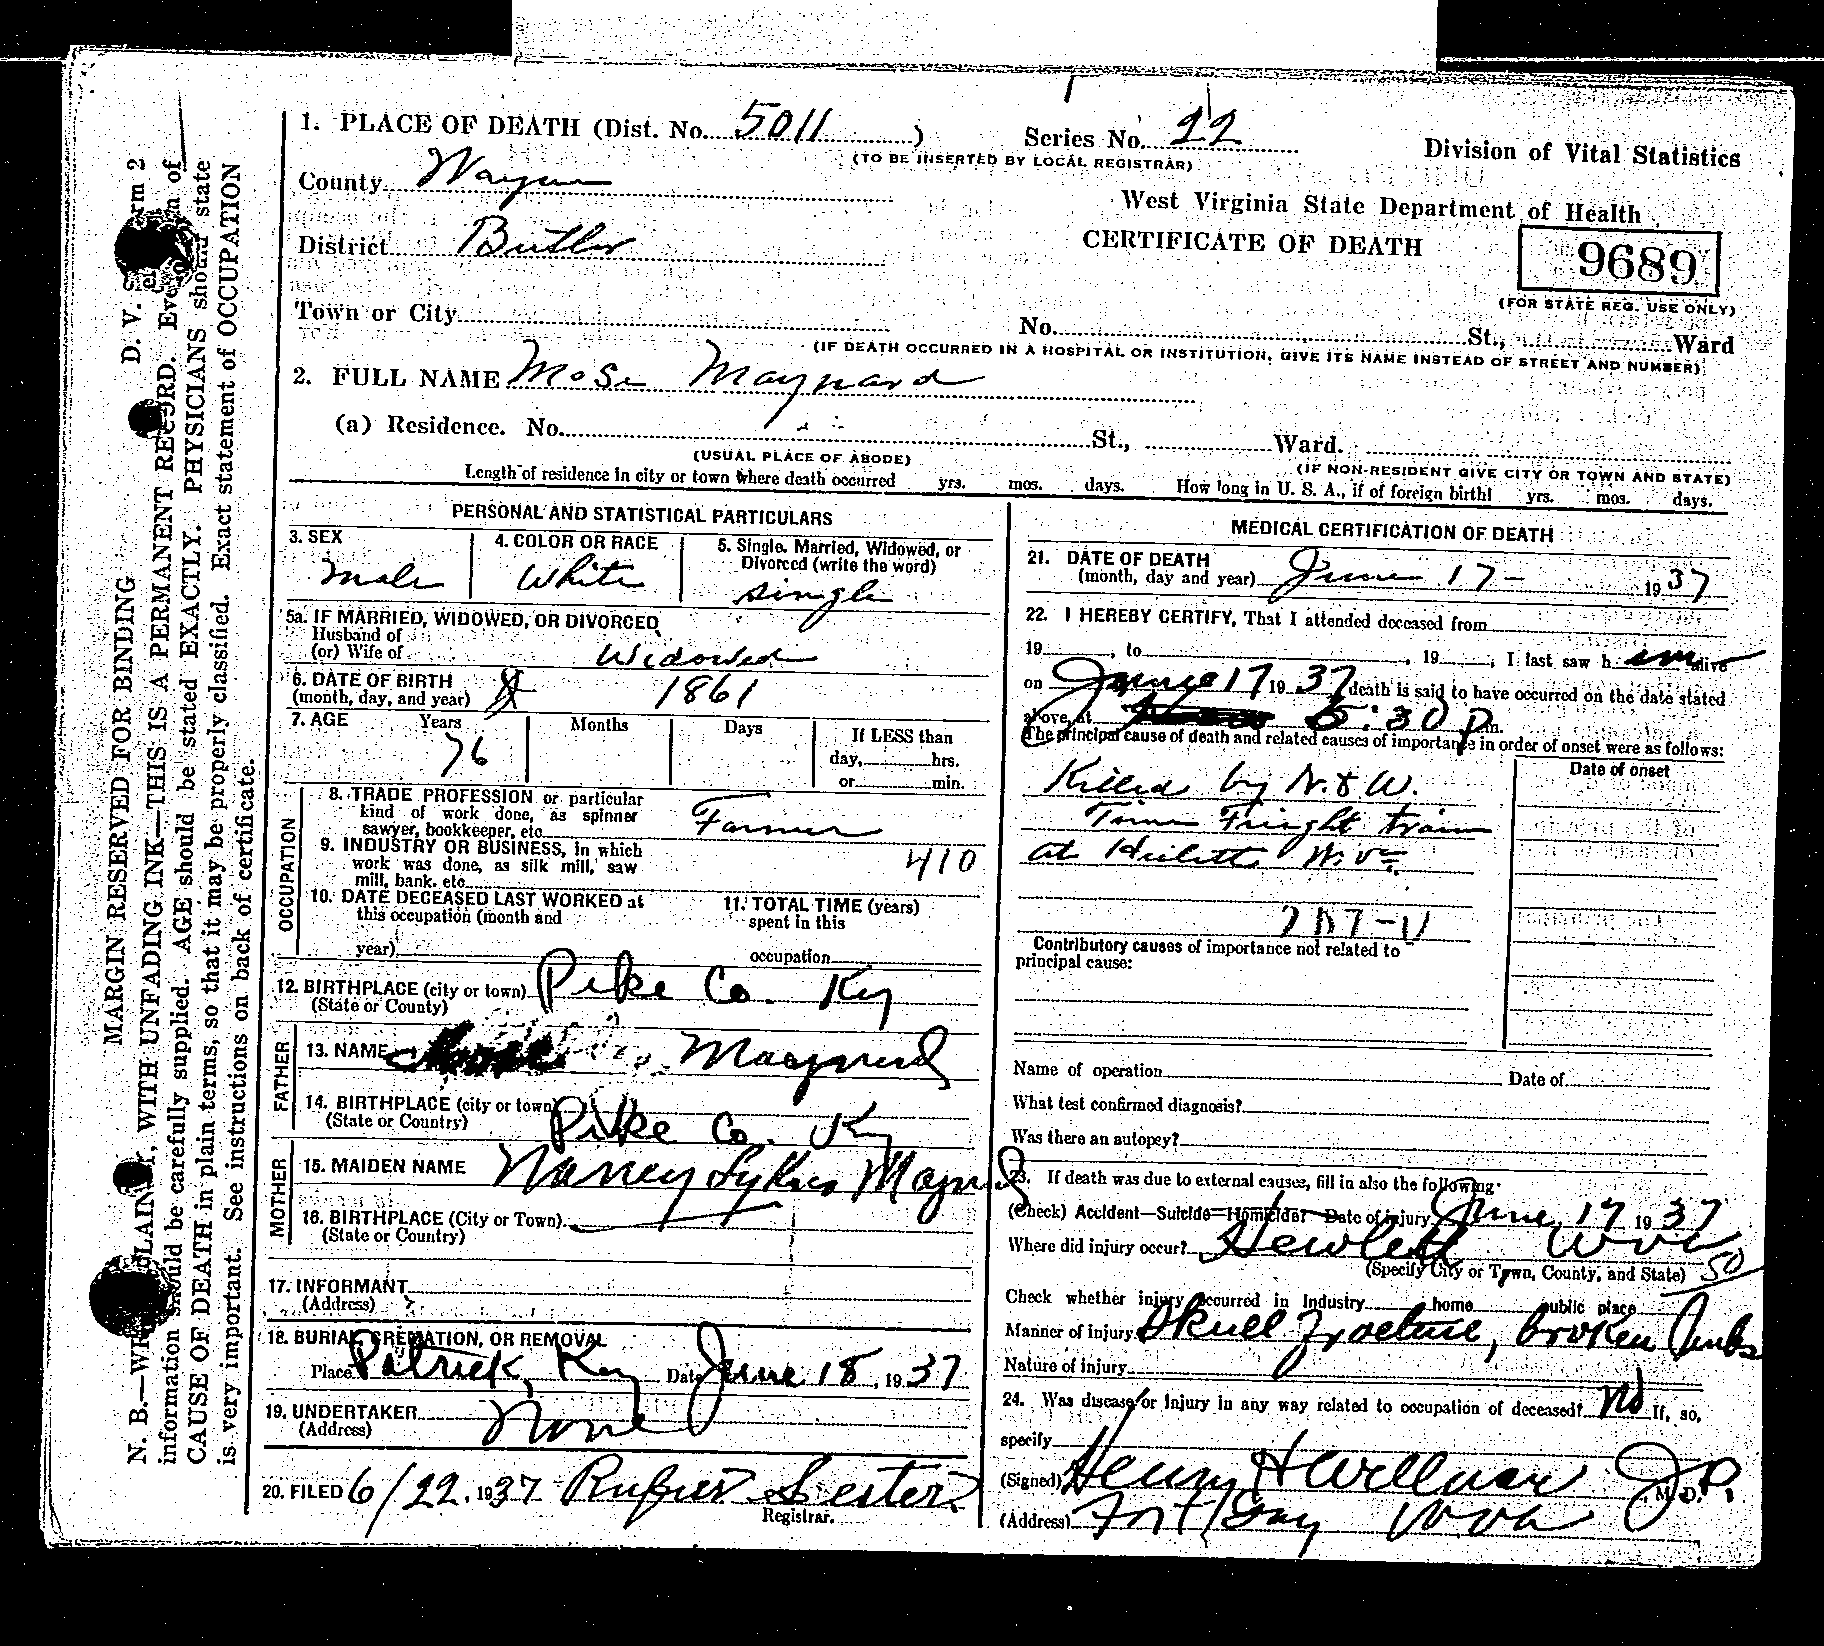 1. PLACE OF DEATH (Dist. No. 5011 )
Series No. 22
(TO BE INSERTED BY LOCAL REGISTRAR)
Division of Vital Statistics
County Wayne
West Virginia State Department of Health
District Butler
CERTIFICATE OF DEATH
9689
(FOR STATE REG. USE ONLY)
Town or City
No. St., Ward
(IF DEATH OCCURRED IN A HOSPITAL OR INSTITUTION, GIVE ITS NAME INSTEAD OF STREET AND NUMBER)
2. FULL NAME Mose Maynard
(a) Residence. No. St., Ward.
(USUAL PLACE OF ABODE)
(IF NON-RESIDENT GIVE CITY OR TOWN AND STATE)
Length of residence in city or town where death occurred yrs. mos. days. How long in U. S. A., if of foreign birth? yrs. mos. days.
PERSONAL AND STATISTICAL PARTICULARS
3. SEX
Male
4. COLOR OR RACE
White
5. Single, Married, Widowed, or
Divorced (write the word)
single
5a. IF MARRIED, WIDOWED, OR DIVORCED
Husband of
(or) Wife of Widowed
6. DATE OF BIRTH
(month, day, and year) 1861
7. AGE Years Months Days If LESS than
76
day, hrs.
or min.
OCCUPATION
8. TRADE PROFESSION or particular
kind of work done, as spinner
sawyer, bookkeeper, etc. Farmer
9. INDUSTRY OR BUSINESS, in which
work was done, as silk mill, saw
mill, bank, etc. 410
10. DATE DECEASED LAST WORKED at
this occupation (month and
year)
11. TOTAL TIME (years)
spent in this
occupation
12. BIRTHPLACE (city or town) Pike Co. Ky
(State or County)
FATHER
13. NAME Maynard
14. BIRTHPLACE (city or town) Pike Co. Ky
(State or Country)
MOTHER
15. MAIDEN NAME Nancy Sykes Maynard
16. BIRTHPLACE (City or Town)
(State or Country)
17. INFORMANT
(Address)
18. BURIAL, CREMATION, OR REMOVAL
Place Patrick, Ky Date June 18, 1937
19. UNDERTAKER None
(Address)
20. FILED 6/22, 1937 Rufus Lester
Registrar.
MEDICAL CERTIFICATION OF DEATH
21. DATE OF DEATH
(month, day and year) June 17- 1937
22. I HEREBY CERTIFY, That I attended deceased from
19 , to , 19 , I last saw h im alive
on June 17 1937 death is said to have occurred on the date stated
above, at 5:30 p m.
The principal cause of death and related causes of importance in order of onset were as follows:
Date of onset
Killed by N. & W.
Time Freight train
at Hewlett W. Va.
Contributory causes of importance not related to
principal cause:
Name of operation Date of
What test confirmed diagnosis?
Was there an autopsy?
23. If death was due to external causes, fill in also the following:
(Check) Accident—Suicide—Homicide? Date of injury June, 17 1937
Where did injury occur? Hewlett W Va
(Specify City or Town, County, and State) 50
Check whether injury occurred in Industry home public place
Manner of injury Skull Fracture, broken limbs
Nature of injury
24. Was disease or injury in any way related to occupation of deceased? No If, so,
specify
(Signed) Henry H Wellman J.P. M. D.
(Address) Fort Gay W Va
MARGIN RESERVED FOR BINDING
D. V.
rm 2
information should be carefully supplied. AGE should be stated EXACTLY. PHYSICIANS should state
CAUSE OF DEATH in plain terms, so that it may be properly classified. Exact statement of OCCUPATION
is very important. See instructions on back of certificate.